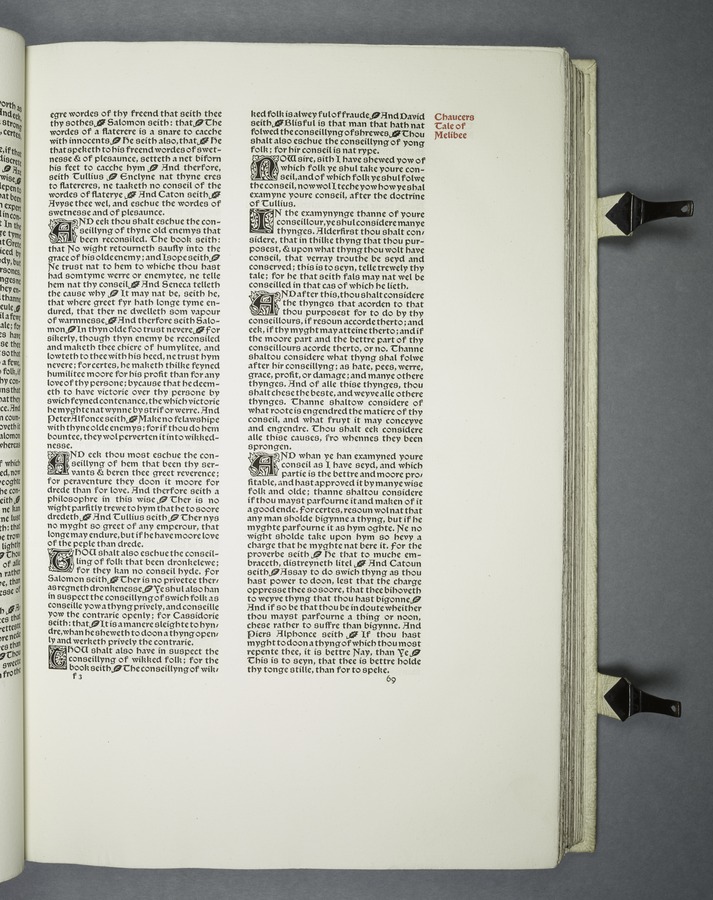 egre wordes of thy freend that seith thee
thy sothes. Salomon seith: that, The
wordes of a flaterere is a snare to cacche
with innocents. He seith also, that, He
that speketh to his freend wordes of swet-
nesse & of plesaunce, setteth a net biforn
his feet to cacche hym. And therfore,
seith Tullius, Enclyne nat thyne eres
to flatereres, ne taaketh no conseil of the
wordes of flaterye. And Caton seith,
Avyse thee wel, and eschue the wordes of
swetnesse and of plesaunce.
AND eek thou shalt eschue the con-
seillyng of thyne old enemys that
been reconsiled. The book seith:
that No wight retourneth saufly into the
grace of his olde enemy; and Isope seith,
Ne trust nat to hem to whiche thou hast
had somtyme werre or enemytee, ne telle
hem nat thy conseil. And Seneca telleth
the cause why. It may nat be, seith he,
that where greet fyr hath longe tyme en-
dured, that ther ne dwelleth som vapour
of warmnesse. And therfore seith Salo-
mon, In thyn olde foo trust nevere. For
sikerly, though thyn enemy be reconsiled
and maketh thee chiere of humylitee, and
lowteth to thee with his heed, ne trust hym
nevere; for certes, he maketh thilke feyned
humilitee moore for his profit than for any
love of thy persone; bycause that he deem-
eth to have victorie over thy persone by
swich feyned contenance, the which victorie
he myghte nat wynne by strif or werre. And
Peter Alfonce seith, Make no felawshipe
with thyne olde enemys; for if thou do hem
bountee, they wol perverten it into wikked-
nesse.
AND eek thou most eschue the con-
seillyng of hem that been thy ser-
vants & beren thee greet reverence;
for peraventure they doon it moore for
drede than for love. And therfore seith a
philosophre in this wise. Ther is no
wight parfitly trewe to hym that he to soore
dredeth. And Tullius seith, Ther nys
no myght so greet of any emperour, that
longe may endure, but if he have moore love
of the peple than drede.
THOU shalt also eschue the conseil-
ling of folk that been dronkelewe;
for they kan no conseil hyde. For
Salomon seith, Ther is no privetee ther/
as regneth dronkenesse. Ye shul also han
in suspect the conseillyng of swich folk as
conseille yow a thyng prively, and conseille
yow the contrarie openly; for Cassidorie
seith: that, It is a manere sleighte to hyn-
dre, whan he sheweth to doon a thyng open/
ly and werketh prively the contrarie.
THOU shalt also have in suspect the
conseillyng of wikked folk; for the
book seith, The conseillyng of wik/
f3
ked folk is alwey ful of fraude. And David
seith, Blisful is that man that hath nat
folwed the conseillyng of shrewes. Thou
shalt also eschue the conseillyng of yong
folk; for hir conseil is nat rype.
NOW sire, sith I have shewed yow of
which folk ye shul take youre con-
seil, and of which folk ye shul folwe
the conseil, now wol I teche yow how ye shal
examyne youre conseil, after the doctrine
of Tullius.
IN the examynynge thanne of youre
conseillour, ye shul considere manye
thynges. Alderfirst thou shalt con/
sidere, that in thilke thyng that thou pur-
posest, & upon what thyng thou wolt have
conseil, that verray trouthe be seyd and
conserved; this is to seyn, telle trewely thy
tale; for he that seith fals may nat wel be
conseilled in that cas of which he lieth.
AND after this, thou shalt considere
the thynges that acorden to that
thou purposest for to do by thy
conseillours, if resoun accorde therto; and
eek, if thy myght may atteine therto; and if
the moore part and the bettre part of thy
conseillours acorde therto, or no. Thanne
shaltou considere what thyng shal folwe
after hir conseillyng; as hate, pees, werre,
grace, profit, or damage; and manye othere
thynges. And of alle thise thynges, thou
shalt chese the beste, and weyve alle othere
thynges. Thanne shaltow considere of
what roote is engendred the matiere of thy
conseil, and what fruyt it may conceyve
and engendre. Thou shalt eek considere
alle thise causes, fro whennes they been
sprongen.
AND whan ye han examyned youre
conseil as I have seyd, and which
partie is the bettre and moore pro/
fitable, and hast approved it by manye wise
folk and olde; thanne shaltou considere
if thou mayst parfourne it and maken of it
a good ende. For certes, resoun wol nat that
any man sholde bigynne a thyng, but if he
myghte parfourne it as hym oghte. Ne no
wight sholde take upon hym so hevy a
charge that he myghte nat bere it. For the
proverbe seith, He that to muche em-
braceth, distreyneth litel. And Catoun
seith, Assay to do swich thyng as thou
hast power to doon, lest that the charge
oppresse thee so soore, that thee bihoveth
to weyve thyng that thou hast bigonne.
And if so be that thou be in doute wheither
thou mayst parfourne a thing or noon,
chese rather to suffre than bigynne. And
Piers Alphonce seith, If thou hast
myght to doon a thyng of which thou most
repente thee, it is bettre Nay, than Ye.
This is to seyn, that thee is bettre holde
thy tonge stille, than for to speke.
69
Chaucers
Tale of
Melibee